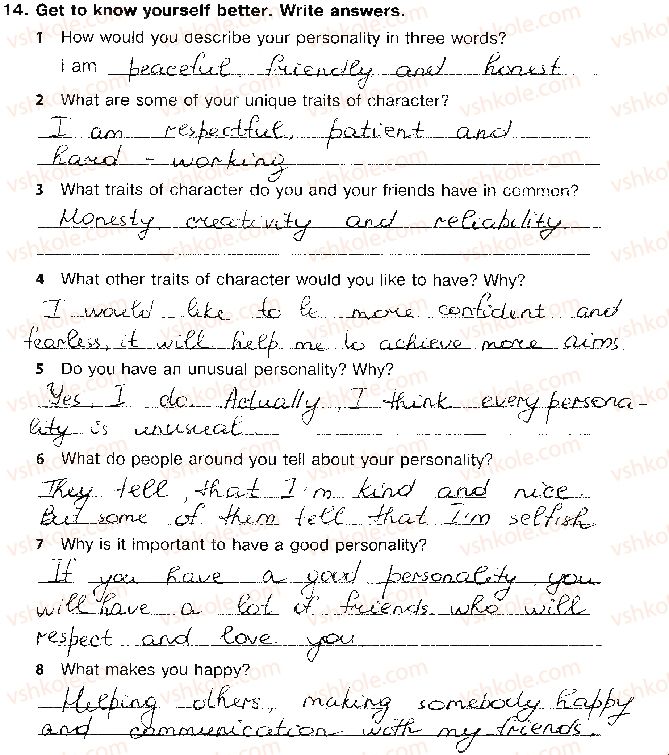 14. Get to know yourself better. Write answers.
1 How would you describe your personality in three words?
I am peaceful, friendly and honest
2 What are some of your unique traits of character?
I am respectful, patient and
hard - working
3 What traits of character do you and your friends have in common?
Honesty, creativity and reliability
4 What other traits of character would you like to have? Why?
I would like to be more confident and
fearless, it will help me to achieve more aims.
5 Do you have an unusual personality? Why?
Yes, I do. Actually, I think every persona-
lity is unusual
6 What do people around you tell about your personality?
They tell, that I'm kind and nice
But some of them tell that I'm selfish
7 Why is it important to have a good personality?
If you have a good personality, you
will have a lot of friends who will
respect and love you
8 What makes you happy?
Helping others, making somebody happy
and communication with my friends.
vshkole.com